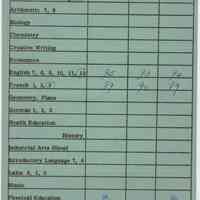 Arithmetic 7, 8
Biology
Chemistry
Creative Writing
Economics
English 7, 8, 9, 10, 11, 12
French 1, 2, 3
Geometry, Plane
German 1, 2, 3
Health Education
History
Industrial Arts (Shop)
Introductory Language 7, 8
Latin
Music
Physical Education